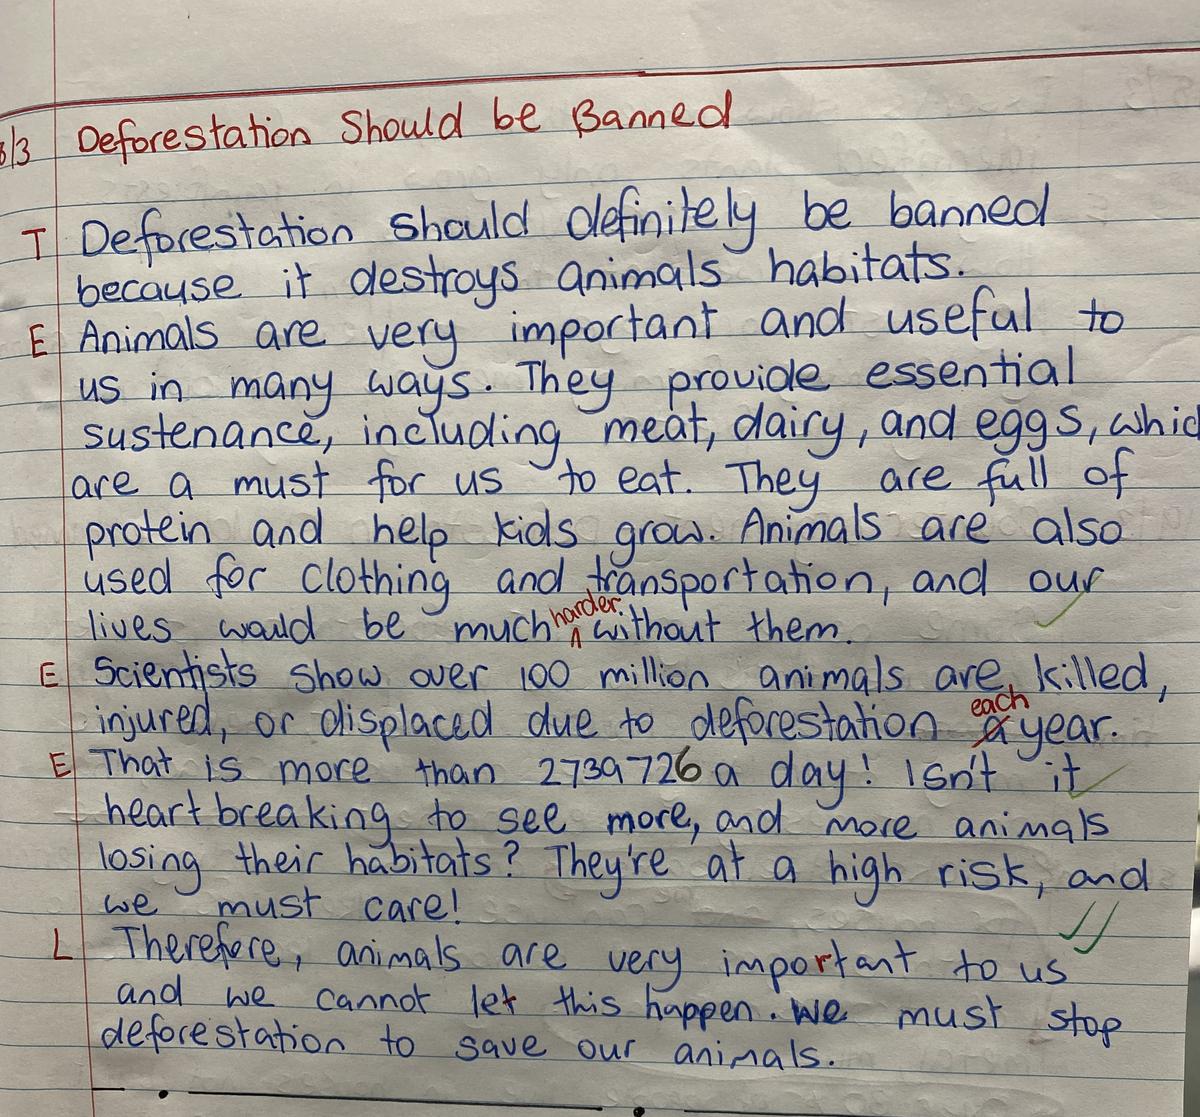 8/3 Deforestation Should be Banned
T Deforestation should definitely be banned
because it destroys animals habitats.
E Animals are very important and useful to
us in many ways. They provide essential
sustenance, including meat, dairy, and eggs, whic
are a must for us to eat. They are full of
protein and help kids grow. Animals are also
used for clothing and transportation, and our
lives would be much harder without them.
E Scientists show over 100 million animals are killed,
injured, or displaced due to deforestation each year.
E That is more than 2739726 a day! Isn't it
heartbreaking to see more, and more animals
losing their habitats? They're at a high risk, and
we must care!
L Therefore, animals are very important to us
and we cannot let this happen. We must stop
deforestation to save our animals.